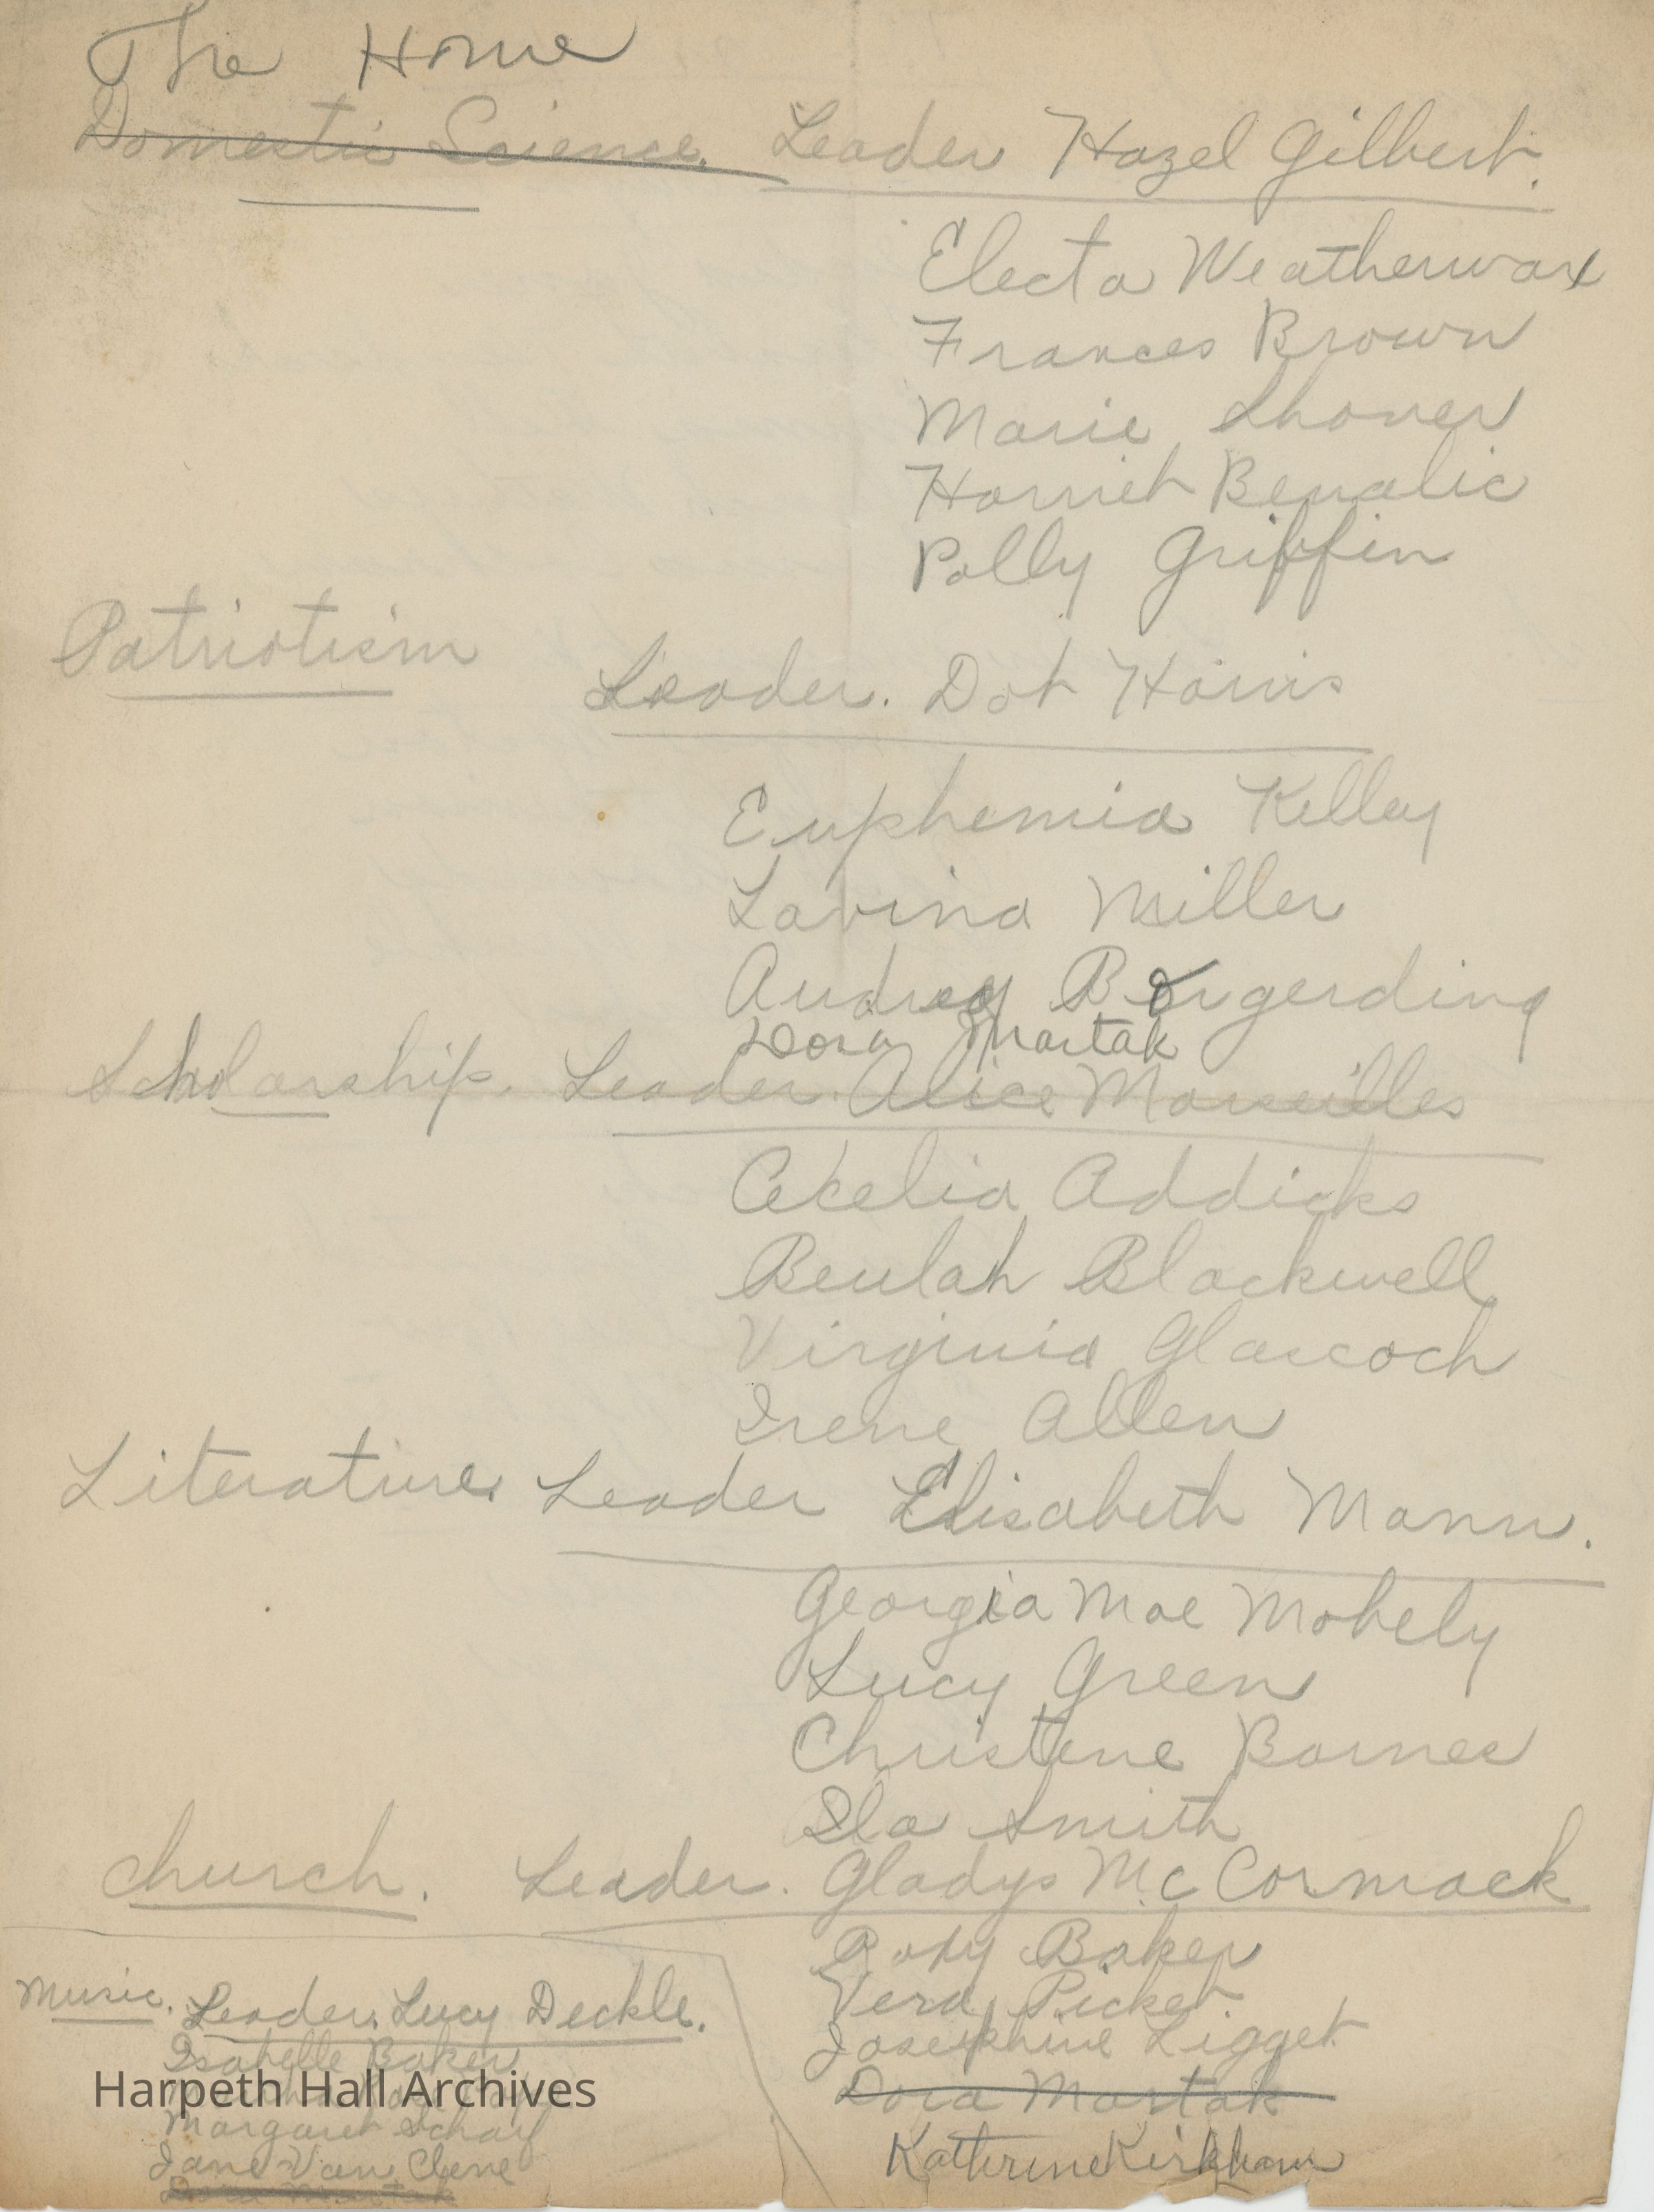 The Home
Domestic Science. Leader Hazel Gilbert.
Electa Weatherwax
Frances Brown
Marie Shover
Harriet Benalic
Polly Griffin
Patriotism
Leader. Dot Harris
Euphemia Kelley
Lavina Miller
Audrey Borgerding
Dora Martak
Scholarship. Leader. Alice Marseilles
Cecelia Addicks
Beulah Blackwell
Virginia Glascoch
Irene Allen
Literature. Leader Elisabeth Mann.
Georgia Mae Mobely
Lucy Green
Christene Barnes
Ila Smith
Church. Leader. Gladys McCormack
Roby Baker
Vera Picket.
Josephine Ligget
Dora Martak
Katherine Kirkham
Music. Leader. Lucy Deckle.
Isabelle Baker
Margaret Scharf
Jane Van Clene
Dora Martak
Harpeth Hall Archives